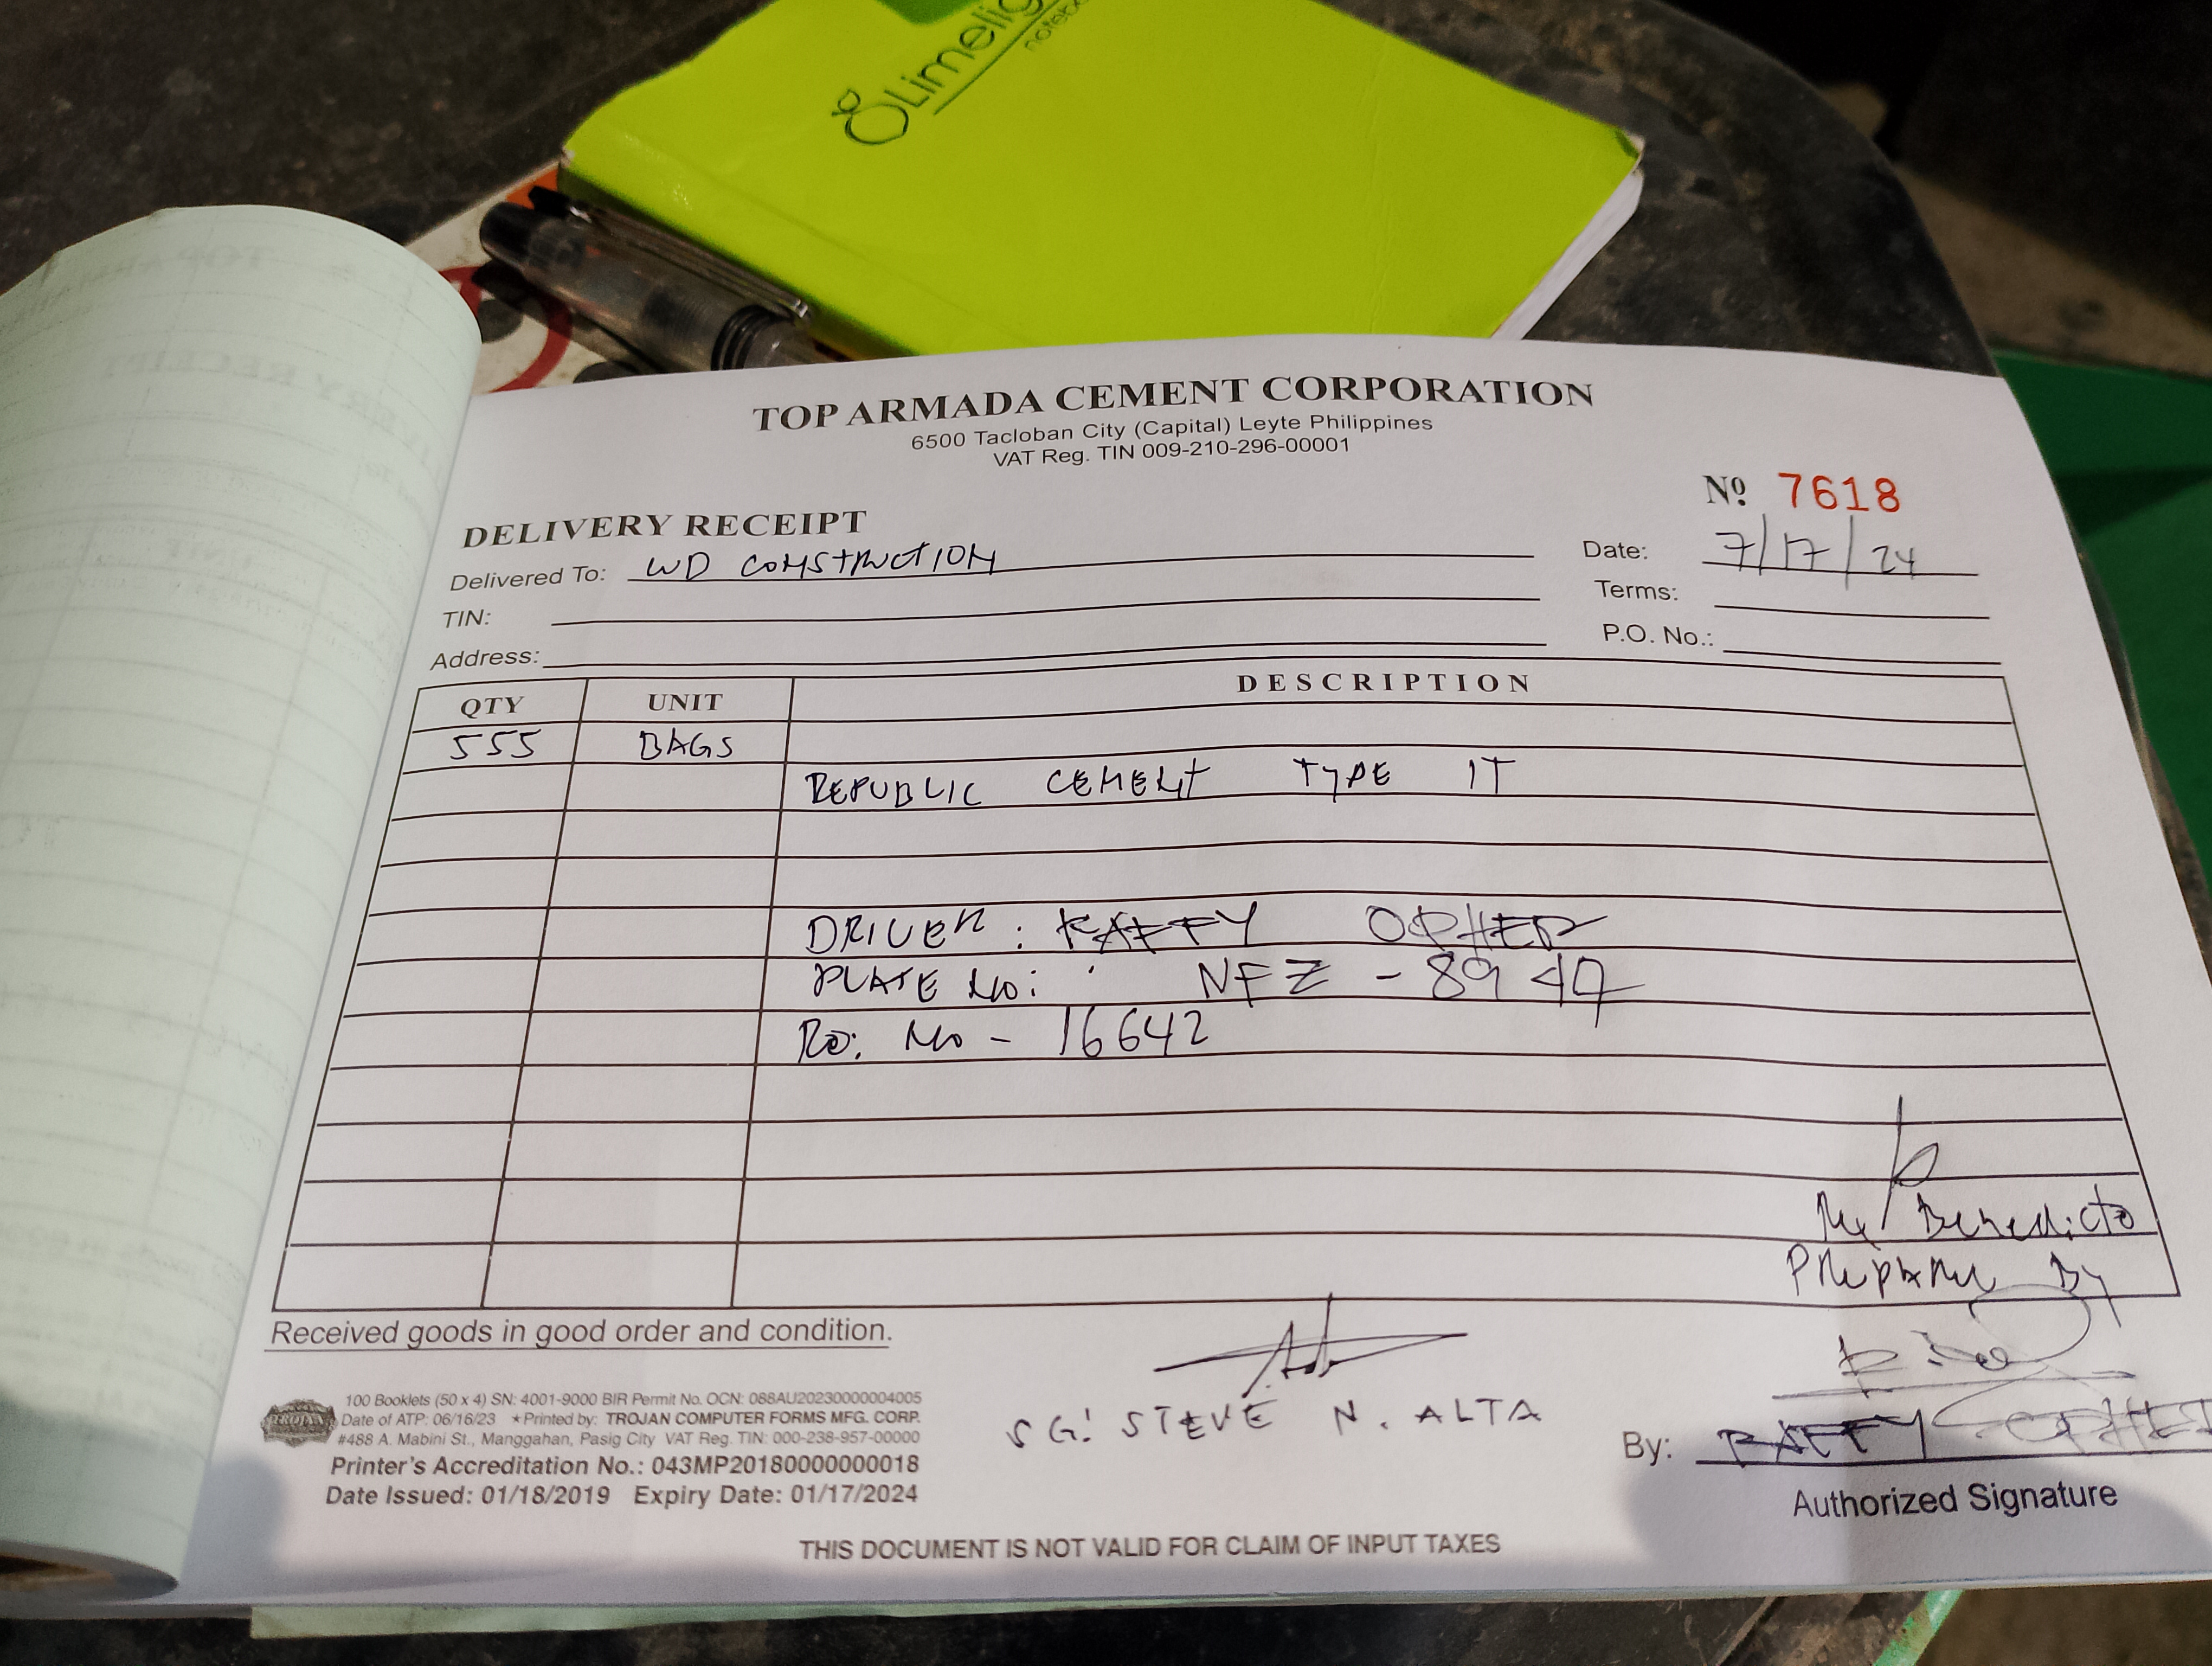 Limelig
noteb
TOP ARMADA CEMENT CORPORATION
6500 Tacloban City (Capital) Leyte Philippines
VAT Reg. TIN 009-210-296-00001
Nº 7618
DELIVERY RECEIPT
Delivered To: WD CONSTRUCTION
Date: 7/17/24
TIN:
Terms:
Address:
P.O. No.:
QTY UNIT DESCRIPTION
555 BAGS
REPUBLIC CEMENT TYPE 1T
DRIVER: RAFFY OPHER
PLATE NO: NFZ - 8947
RO: NO - 16642
Benedicto
Prepare By
Received goods in good order and condition.
SG: STEVE N. ALTA
By: RAFFY OPHER
Authorized Signature
TROJAN
100 Booklets (50 x 4) SN: 4001-9000 BIR Permit No. OCN: 088AU20230000004005
Date of ATP: 06/16/23 ★Printed by: TROJAN COMPUTER FORMS MFG. CORP.
#488 A. Mabini St., Manggahan, Pasig City VAT Reg. TIN: 000-238-957-00000
Printer's Accreditation No.: 043MP20180000000018
Date Issued: 01/18/2019 Expiry Date: 01/17/2024
THIS DOCUMENT IS NOT VALID FOR CLAIM OF INPUT TAXES